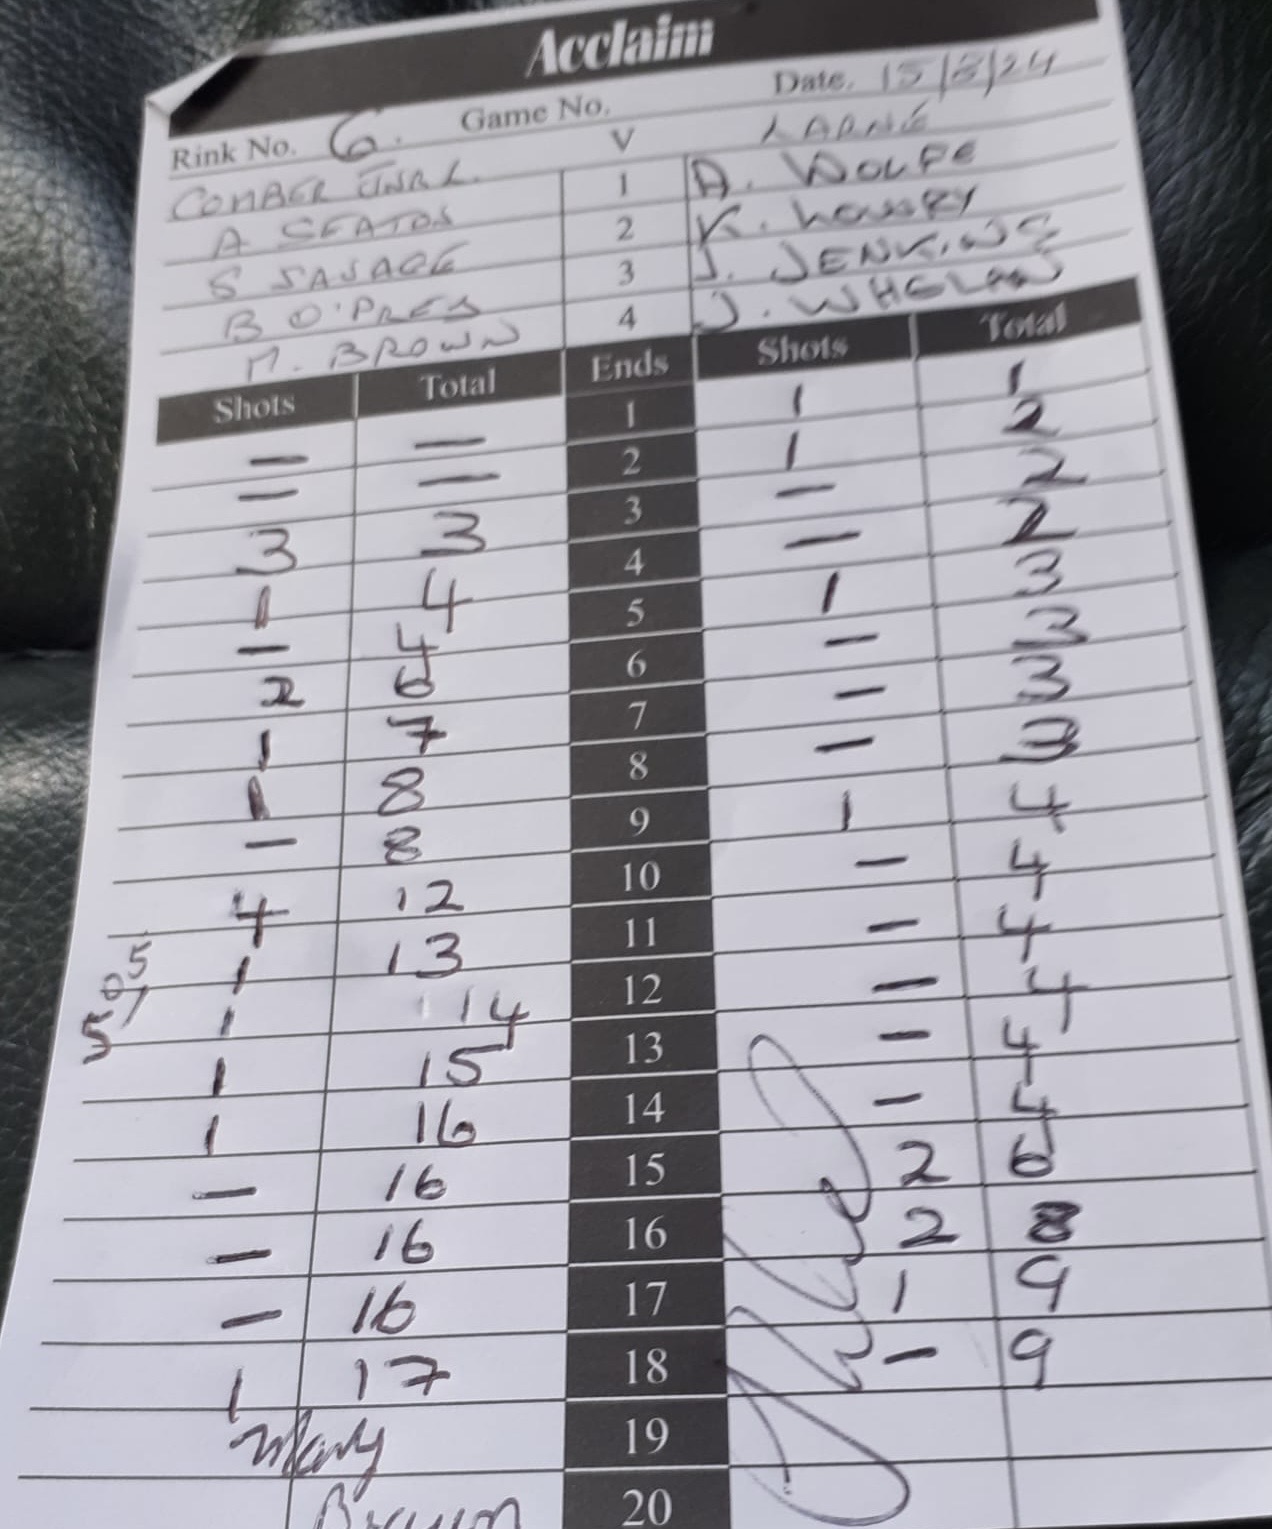 Acclaim
Rink No. 6. Game No. Date. 15/8/24
V LARNE
COMBER
A SEATON 1 A. WOLFE
S SAVAGE 2 K. LOWRY
B O'PREY 3 J. JENKINS
M. BROWN 4 J. WHELAN
Shots Total Ends Shots Total
— — 1 1 1
— — 2 1 2
3 3 3 — 2
1 4 4 — 2
— 4 5 1 3
2 6 6 — 3
1 7 7 — 3
1 8 8 — 3
— 8 9 1 4
4 12 10 — 4
1 13 11 — 4
1 14 12 — 4
1 15 13 — 4
1 16 14 — 4
— 16 15 2 6
— 16 16 2 8
— 16 17 1 9
1 17 18 — 9
19
20